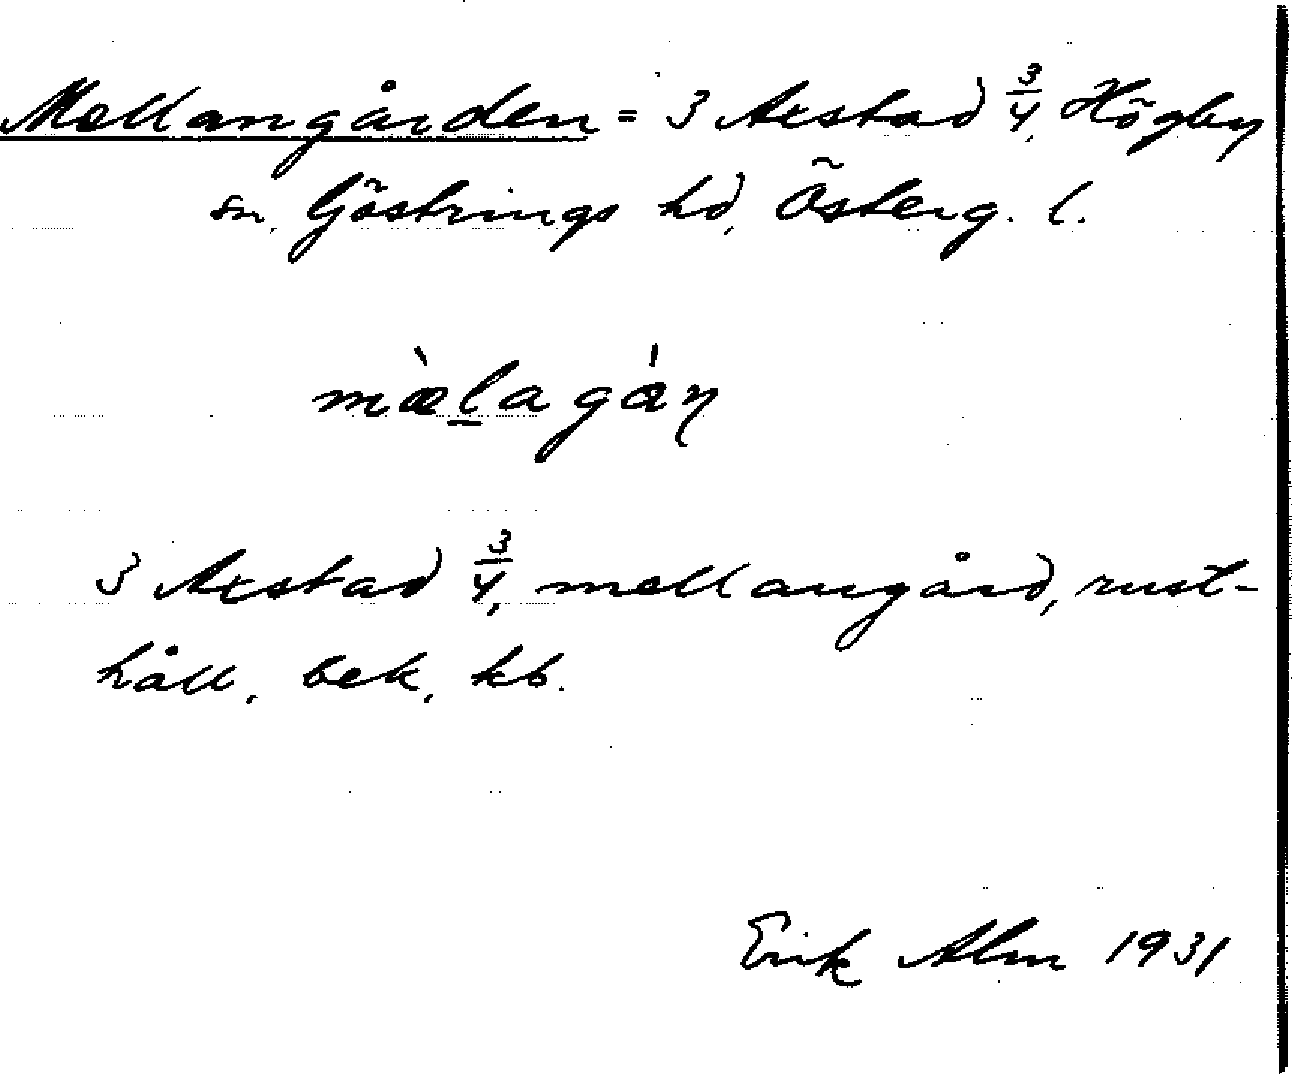 Mellangården = 3 Axstad 3/4, Högby
sn, Göstrings hd, Österg. l.
mæ̀lagá̊ṇ
3 Axstad 3/4, mellangård, rust-
håll, bek, kb.
Erik Alm 1931